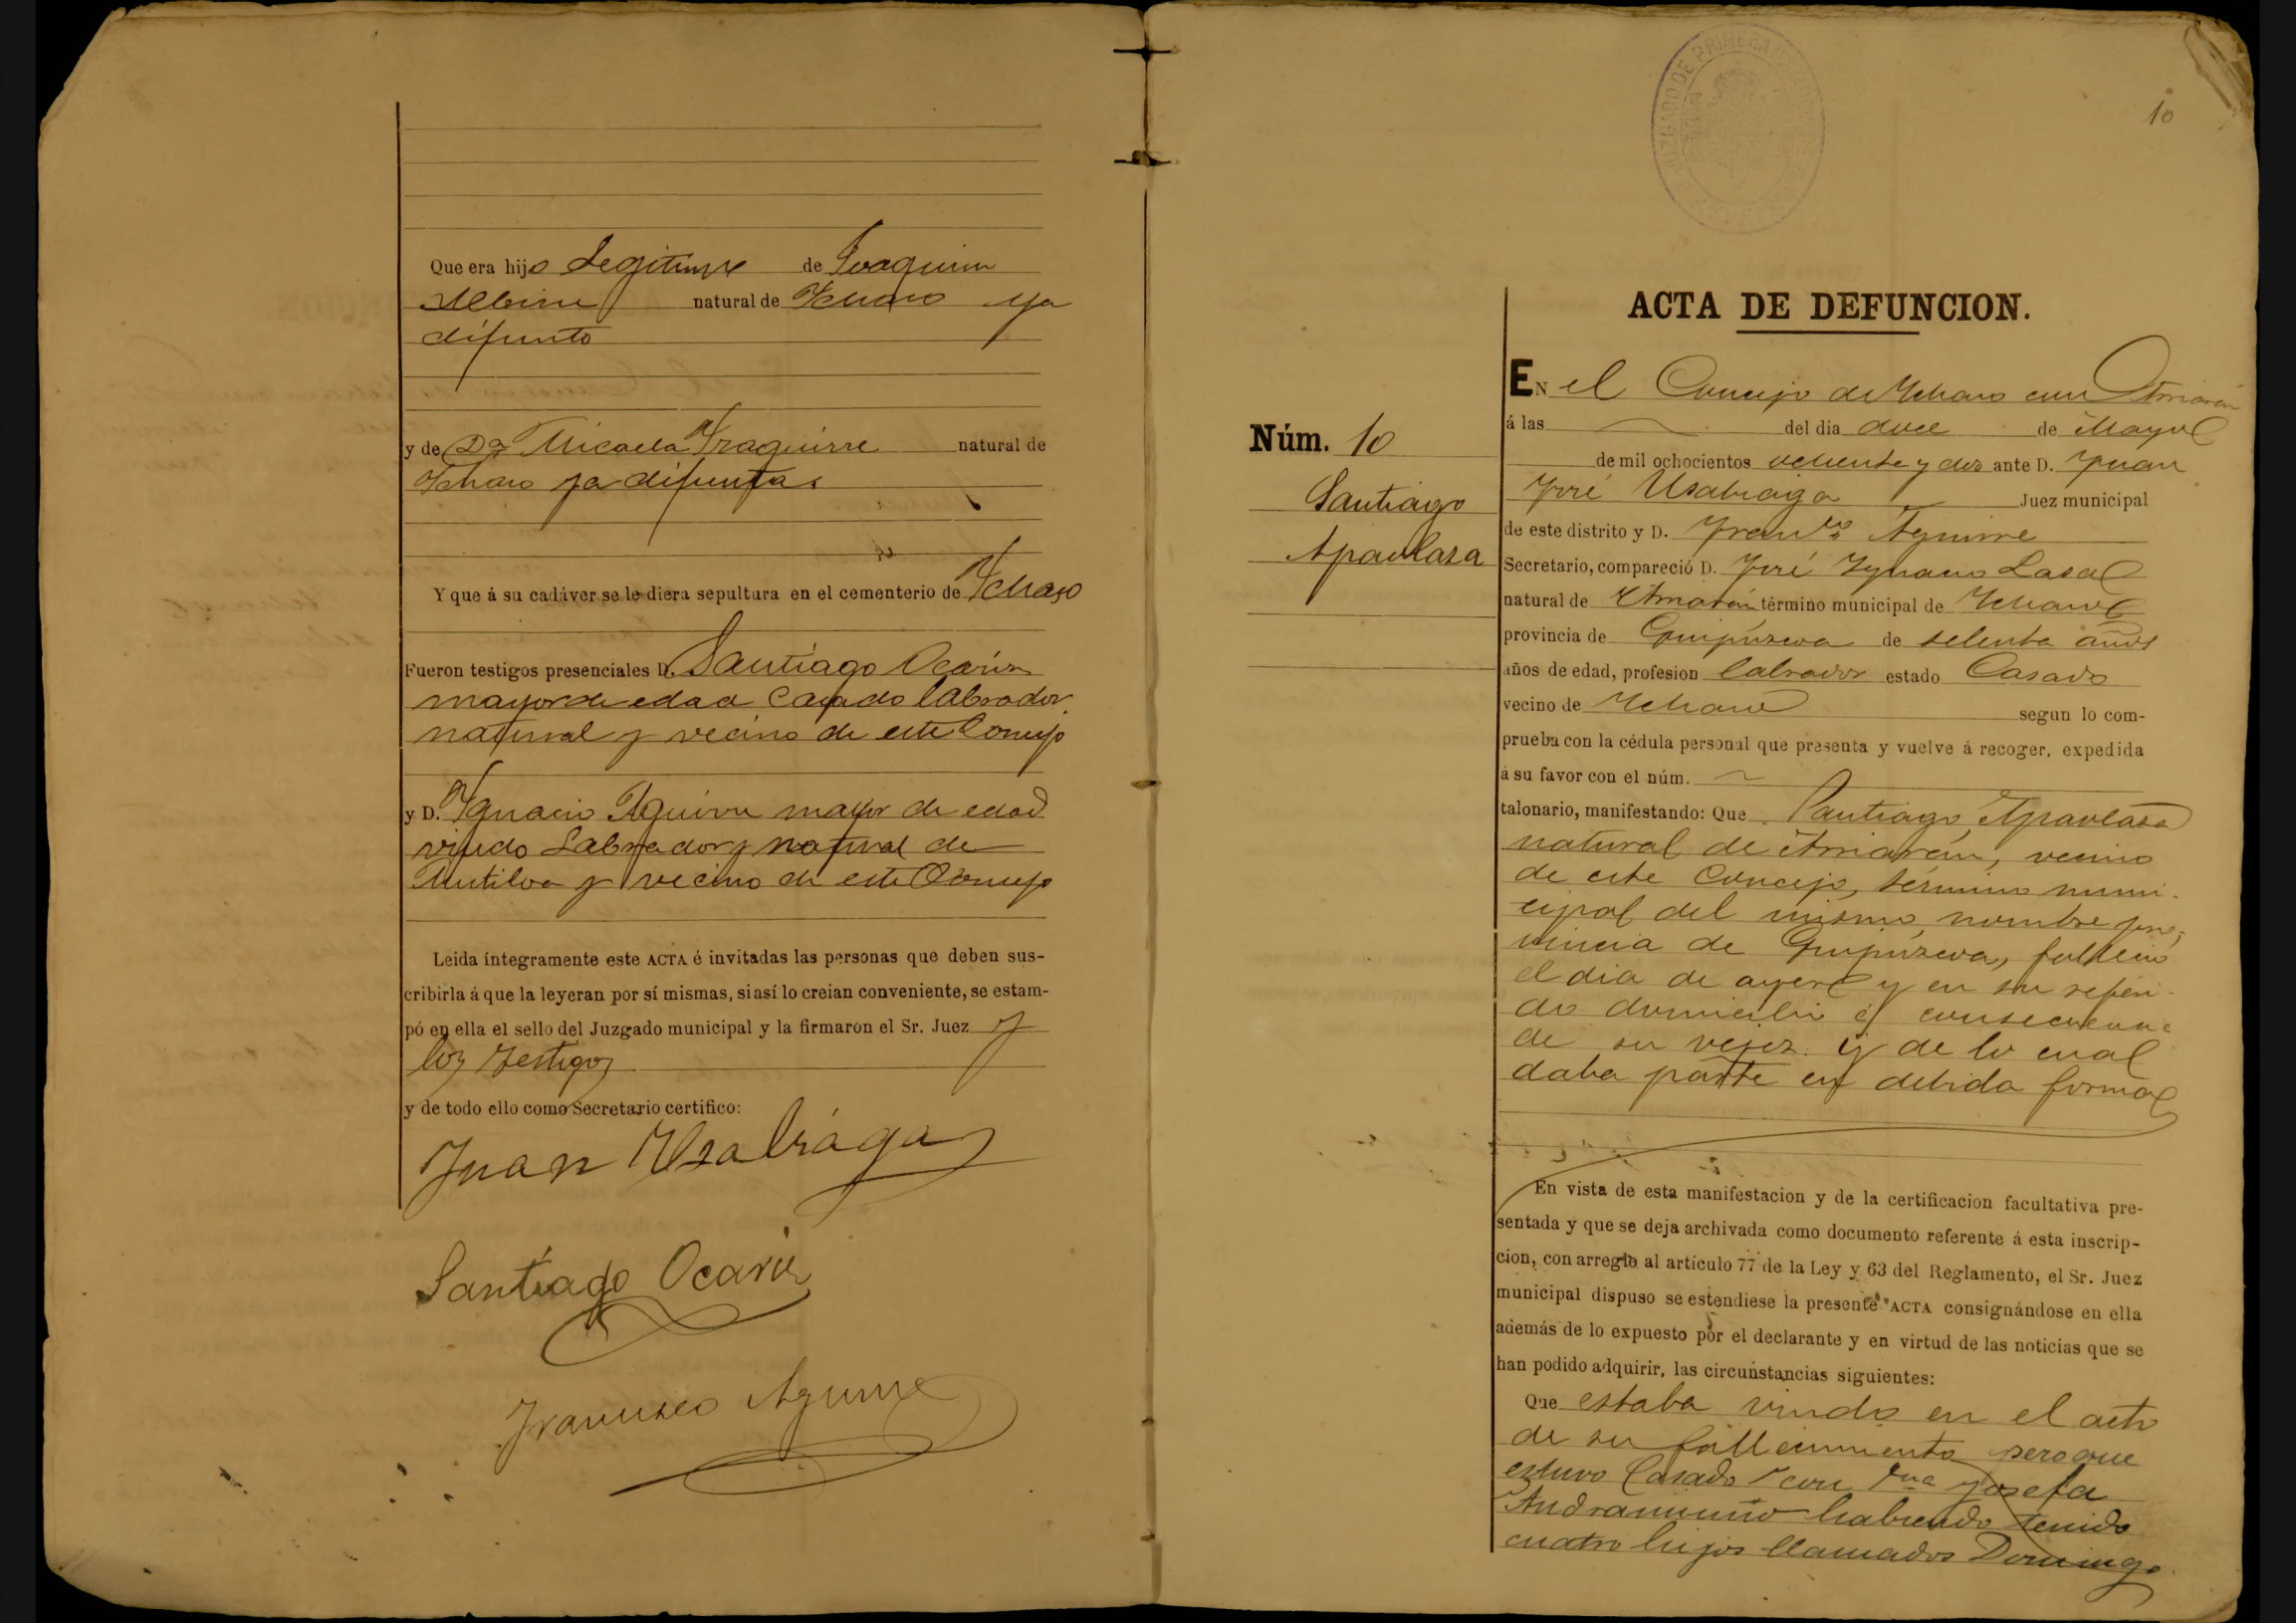 Que era hijo Legitimo de Joaquin
Albisu natural de Ichaso ya
difunto
y de Da Micaela Yraguirre natural de
Ichaso ya difuntas
Y que á su cadáver se le diera sepultura en el cementerio de Ichaso
Fueron testigos presenciales D. Santiago Ocariz
mayor de edad Casado labrador
natural y vecino de este Concejo
y D. Ygnacio Aguirre mayor de edad
viudo Labrador y natural de
Mutiloa y vecino de este Concejo
Leida íntegramente este ACTA é invitadas las personas que deben sus-
cribirla á que la leyeran por sí mismas, si así lo creian conveniente, se estam-
pó en ella el sello del Juzgado municipal y la firmaron el Sr. Juez y
los testigos
y de todo ello como Secretario certifico:
Juan Usabiaga
Santiago Ocariz
Francisco Aguirre
JUZGADO DE PRIMERA
10
ACTA DE DEFUNCION.
Núm. 10
Santiago
Apaolaza
EN el Concejo de Ichaso con Arriaran
á las del dia doce de Mayo
de mil ochocientos ochenta y dos ante D. Juan
José Usabiaga Juez municipal
de este distrito y D. Franco Aguirre
Secretario, compareció D. José Ygnacio Lasa
natural de Arriaran término municipal de Ichaso
provincia de Guipúzcoa de setenta años
años de edad, profesion labrador estado Casado
vecino de Ichaso segun lo com-
prueba con la cédula personal que presenta y vuelve á recoger, expedida
á su favor con el núm.
talonario, manifestando: Que Santiago Apaolaza
natural de Arriaran, vecino
de este Concejo, término muni-
cipal del mismo nombre pro-
vincia de Guipúzcoa, falleció
el dia de ayer y en su referi-
do domicilio á consecuenc
de su vejez. y de lo cual
daba parte en debida forma
En vista de esta manifestacion y de la certificacion facultativa pre-
sentada y que se deja archivada como documento referente á esta inscrip-
cion, con arreglo al artículo 77 de la Ley y 63 del Reglamento, el Sr. Juez
municipal dispuso se estendiese la presente ACTA consignándose en ella
además de lo expuesto por el declarante y en virtud de las noticias que se
han podido adquirir, las circunstancias siguientes:
Que estaba viudo en el acto
de su fallecimiento pero que
estuvo Casado con Josefa
habiendo tenido
cuatro hijos llamados Domingo